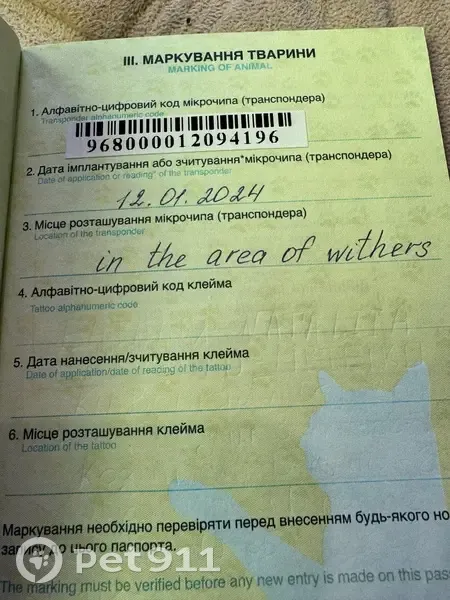 III. МАРКУВАННЯ ТВАРИНИ
MARKING OF ANIMAL
1. Алфавітно-цифровий код мікрочипа (транспондера)
Transponder alphanumeric code
968000012094196
2. Дата імплантування або зчитування*мікрочипа (транспондера)
Date of application or reading* of the transponder
12.01.2024
3. Місце розташування мікрочипа (транспондера)
Location of the transponder
in the area of withers
4. Алфавітно-цифровий код клейма
Tattoo alphanumeric code
5. Дата нанесення/зчитування клейма
Date of application/date of reading of the tattoo
6. Місце розташування клейма
Location of the tattoo
Маркування необхідно перевіряти перед внесенням будь-якого но
запису до цього паспорта.
The marking must be verified before any new entry is made on this pas
Pet911